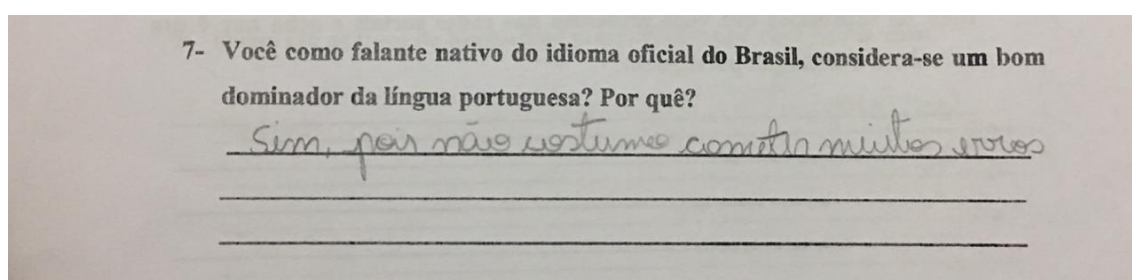 7- Você como falante nativo do idioma oficial do Brasil, considera-se um bom
dominador da língua portuguesa? Por quê?
Sim, pois não costumo cometer muitos erros